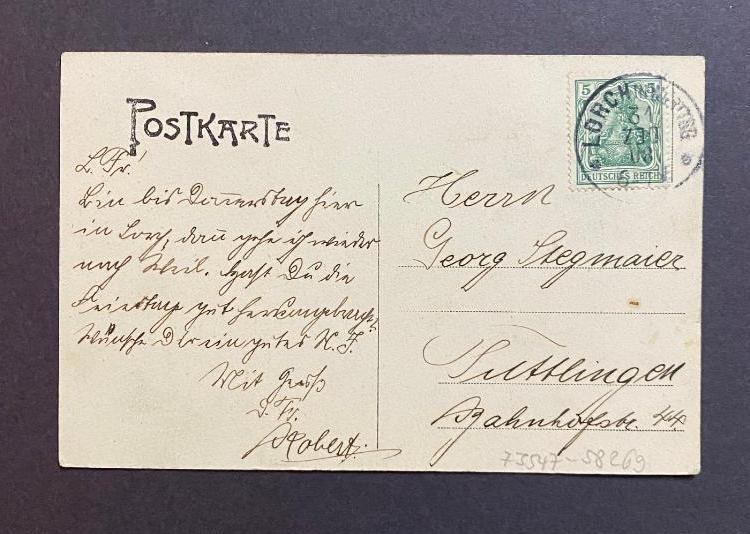 POSTKARTE
L. Fr.!
Bin bis Donnerstag hier
in Lorch, dann gehe ich wieder
nach Weil. Hast Du die
Feiertage gut herumgebracht?
Wünsche Dir ein gutes N. J.
Mit Gruß
D. Fr.
Robert.
5 5
DEUTSCHES REICH
LORCH
31
Herrn
Georg Stegmaier
Tuttlingen
Bahnhofstr. 44.
73547-58269